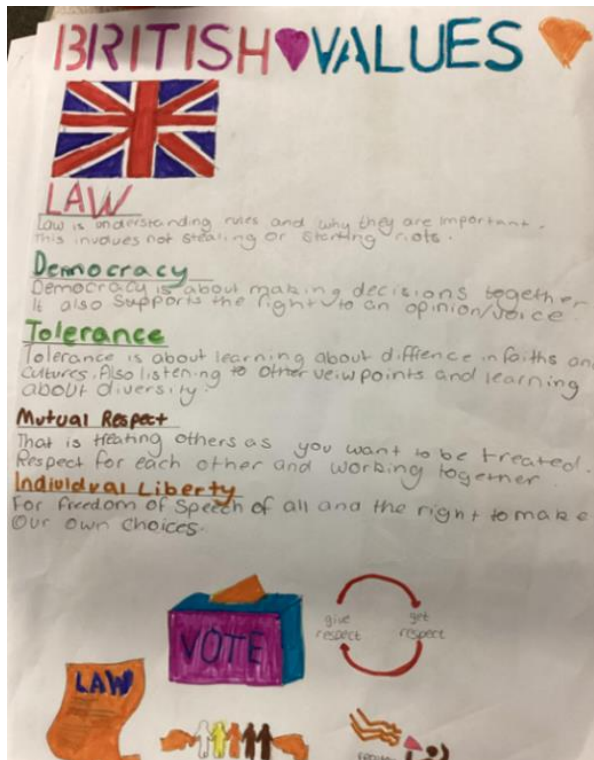 BRITISH VALUES
LAW
Law is understanding rules and why they are important.
this involves not stealing or starting riots.
Democracy
Democracy is about making decisions together
It also supports the right to an opinion/voice.
Tolerance
Tolerance is about learning about diffrence in faiths an
cutures. Also listening to other veiwpoints and learning
about diversity.
Mutual Respect
That is treating others as you want to be treated.
Respect for each other and working together.
Individual Liberty
For freedom of speech of all and the right to make
our own choices.
give get
respect respect
VOTE
LAW